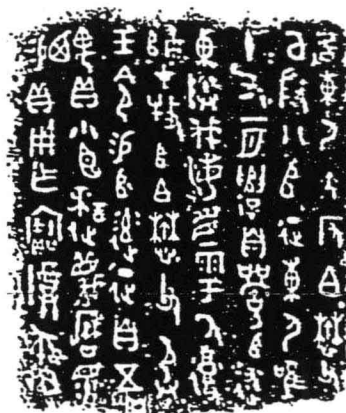 東夷大反白懋父
以殷八𠂤征東夷唯
十又一月遣自𠂤述
東伐海眉雩厥復
歸才牧𠂤白懋父承
王令易𠂤征自五
齵貝小臣謎蔑曆眔
易貝用乍寶尊彝